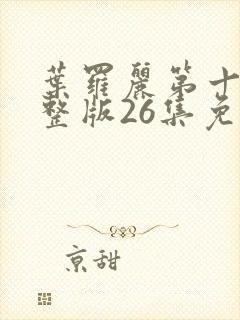 葉羅麗第十
整版26集免
京甜